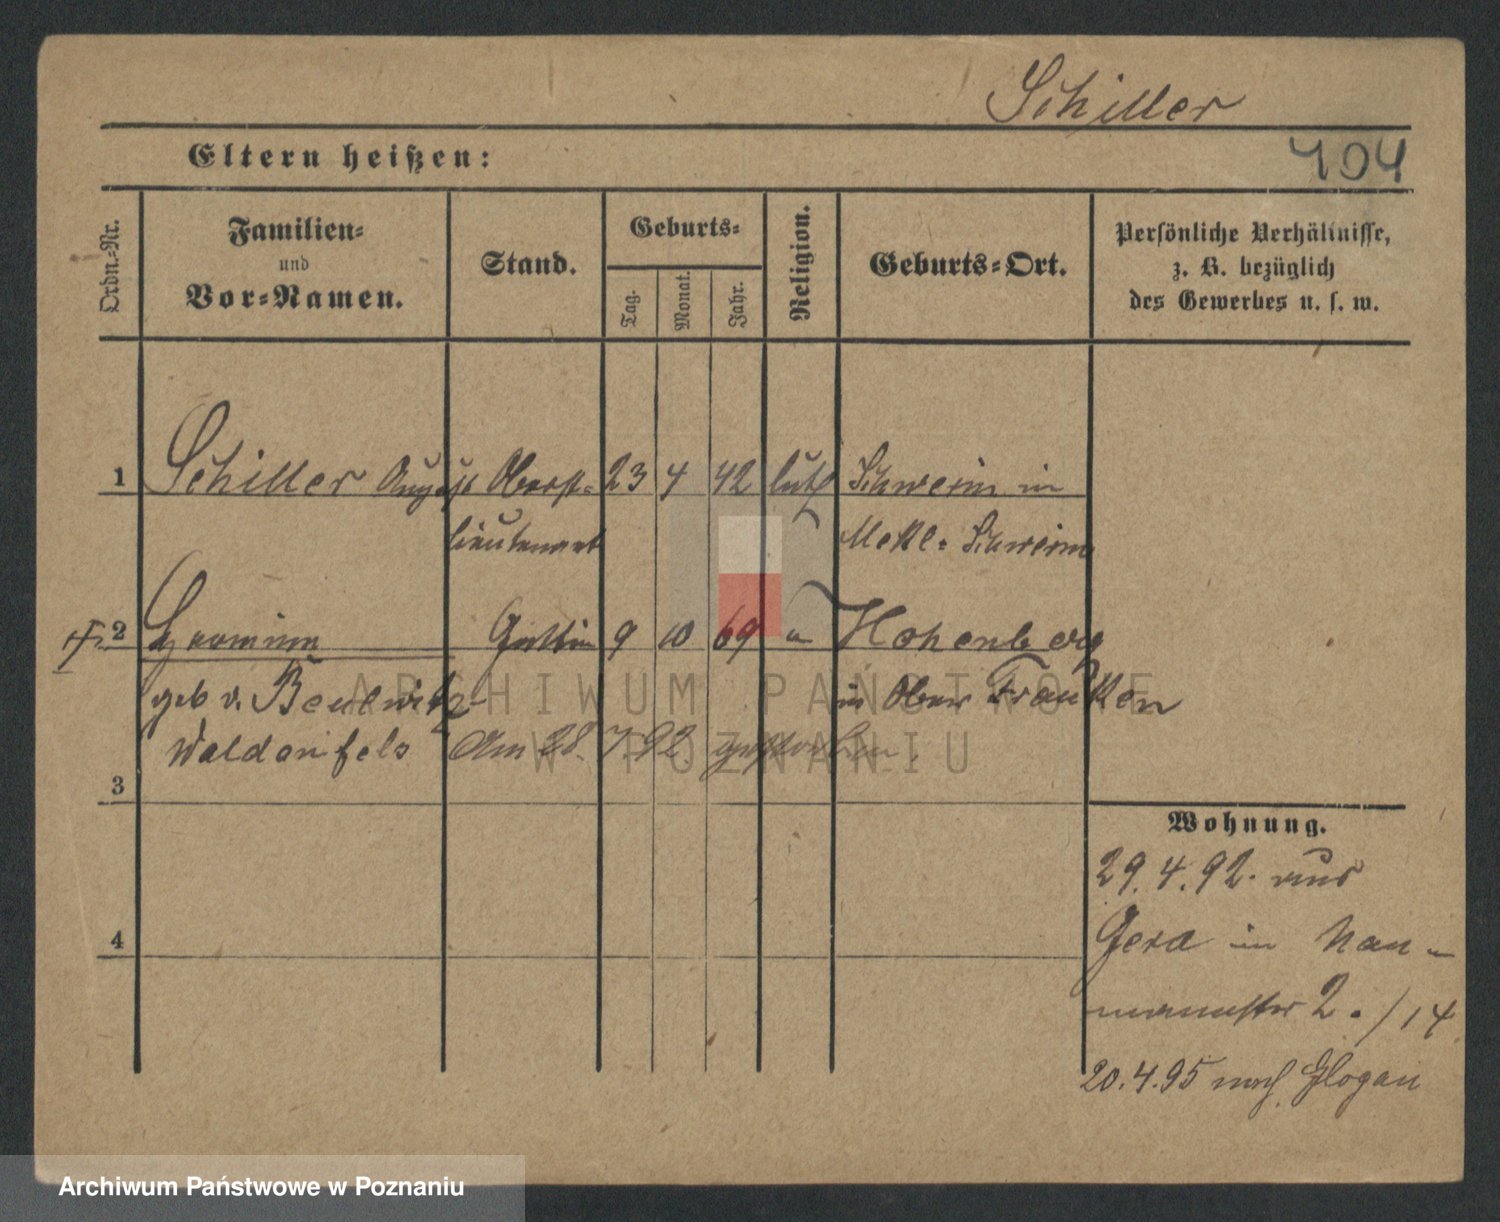 Schiller
404
Eltern heißen:
Ordn.-Nr.
Familien-
und
Vor-Namen.
Stand.
Geburts-
Tag.
Monat.
Jahr.
Religion.
Geburts-Ort.
Persönliche Verhältnisse,
z. B. bezüglich
des Gewerbes u. s. w.
1 Schiller August Oberst- 23 4 42 luth Schwerin in
lieutenant Meckl. Schwerin
2 Gattin 9 10 69 " Hohenberg
geb v. Beulwitz in Ober Franken
Waldenfels Am 28. 7. 92 gestorben.
3
4
Wohnung.
29. 4. 92. aus
Gera in Nau-
mannstr 2. / 14
20. 4. 95 nach Glogau
ARCHIWUM PAŃSTWOWE
W POZNANIU
Archiwum Państwowe w Poznaniu